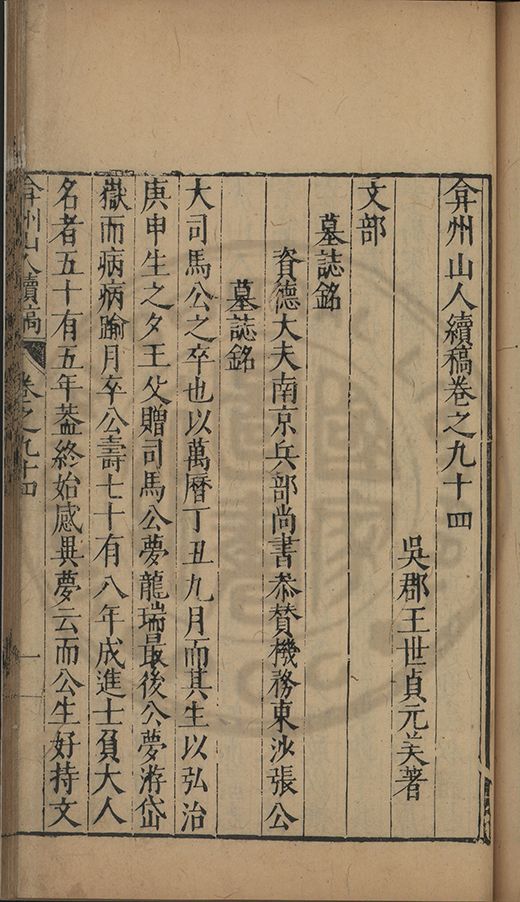 弇州山人續稿卷之九十四
吳郡王世貞元美著
文部
墓誌銘
資德大夫南京兵部尚書叅贊機務東沙張公
墓誌銘
大司馬公之卒也以萬曆丁丑九月而其生以弘治
庚申生之夕王父贈司馬公夢龍瑞最後公夢游岱
嶽而病病踰月卒公壽七十有八年成進士負大人
名者五十有五年葢終始感異夢云而公生好持文
弇州山人續稿
卷之九十四
一